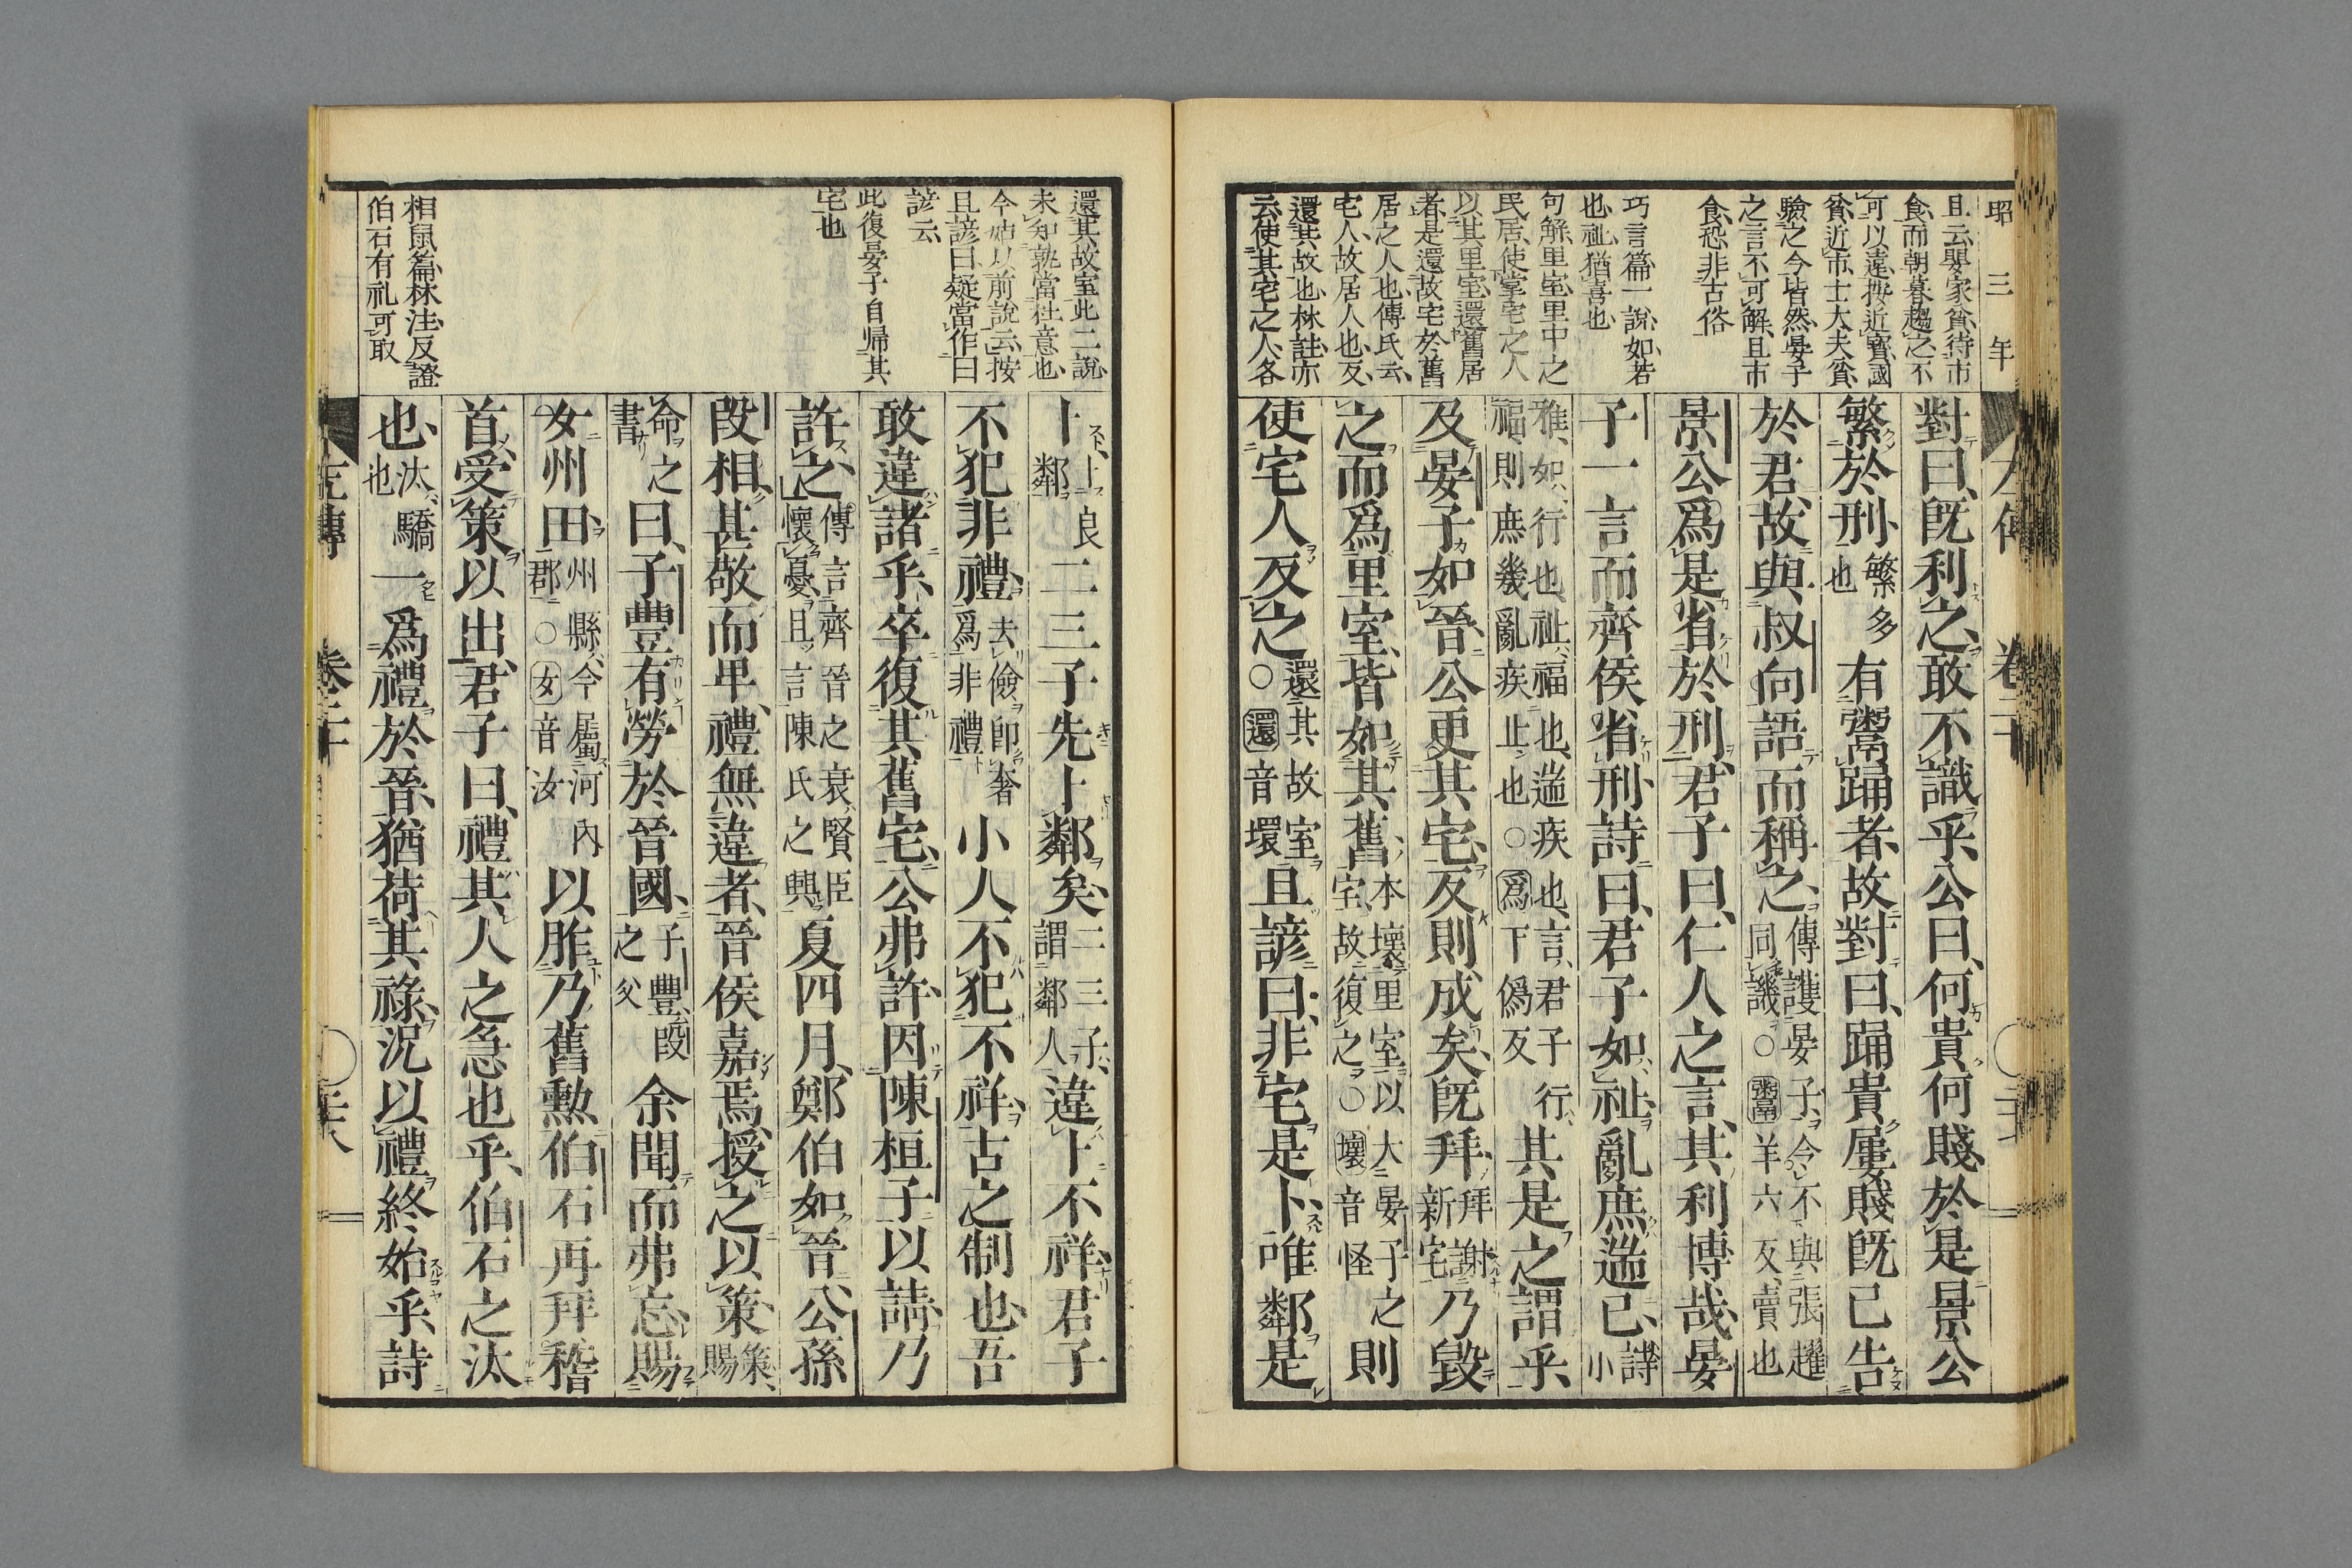 昭三年
且云嬰家貧待市
食而朝暮趨之不
可以遠按近寳國
貧近市士大夫貧
驗之今皆然晏子
之言不可解且市
食恐非古俗
巧言篇一説如若
也祉猶喜也
句解里室里中之
民居使掌宅之人
以其里室還舊居
者是還故宅於舊
居之人也傳氏云
宅人故居人也反
還其故也林註亦
云使其宅之人各
對曰、旣利之、敢不識乎、公曰、何貴何賤、於是景公
繁於刑、繁多也有鬻踊者、故對曰、踊貴、屨賤、旣已告
於君、故與叔向語而稱之、傳護晏子、今不與張趯同譏○鬻羊六反、賣也
景公爲是省於刑、君子曰、仁人之言、其利博哉、晏
子一言而齊侯省刑、詩曰、君子如祉、亂庶遄已、詩小
雅、如、行也、祉、福也、遄疾也、言、君子行福、則庶幾亂疾止也○爲下僞反其是之謂乎、
及晏子如晉、公更其宅、反則成矣、旣拜、拜謝新宅乃毀
之而爲里室、皆如其舊、本壞里室以大晏子之宅、故復之○壞音怪則
使宅人反之、還其故室○還音環且諺曰、非宅是卜、唯鄰是
還其故室此二説
未知孰當杜意也
今姑以前説云按
且諺曰疑當作曰
諺云
此復晏子自帰其
宅也
相鼠篇林注反證
伯石有礼可取
卜、卜良鄰二三子先卜鄰矣、二三子、謂鄰人違卜不祥、君子
不犯非禮、去儉卽奢爲非禮小人不犯不祥、古之制也、吾
敢違諸乎、卒復其舊宅、公弗許、因陳桓子以請、乃
許之、傳言齊晉之衰、賢臣懷憂、且言陳氏之興夏四月、鄭伯如晉、公孫
段相、甚敬而卑、禮無違者、晉侯嘉焉、授之以策、策、賜
命之書曰、子豐有勞於晉國、子豐、段之父余聞而弗忘、賜
女州田、州縣、今屬河內郡○女音汝以胙乃舊勲、伯石再拜稽
首、受策以出、君子曰、禮、其人之急也乎、伯石之汰
也、汰、驕也一爲禮於晉、猶荷其祿、況以禮終始乎、詩
左傳 卷二十 二十八